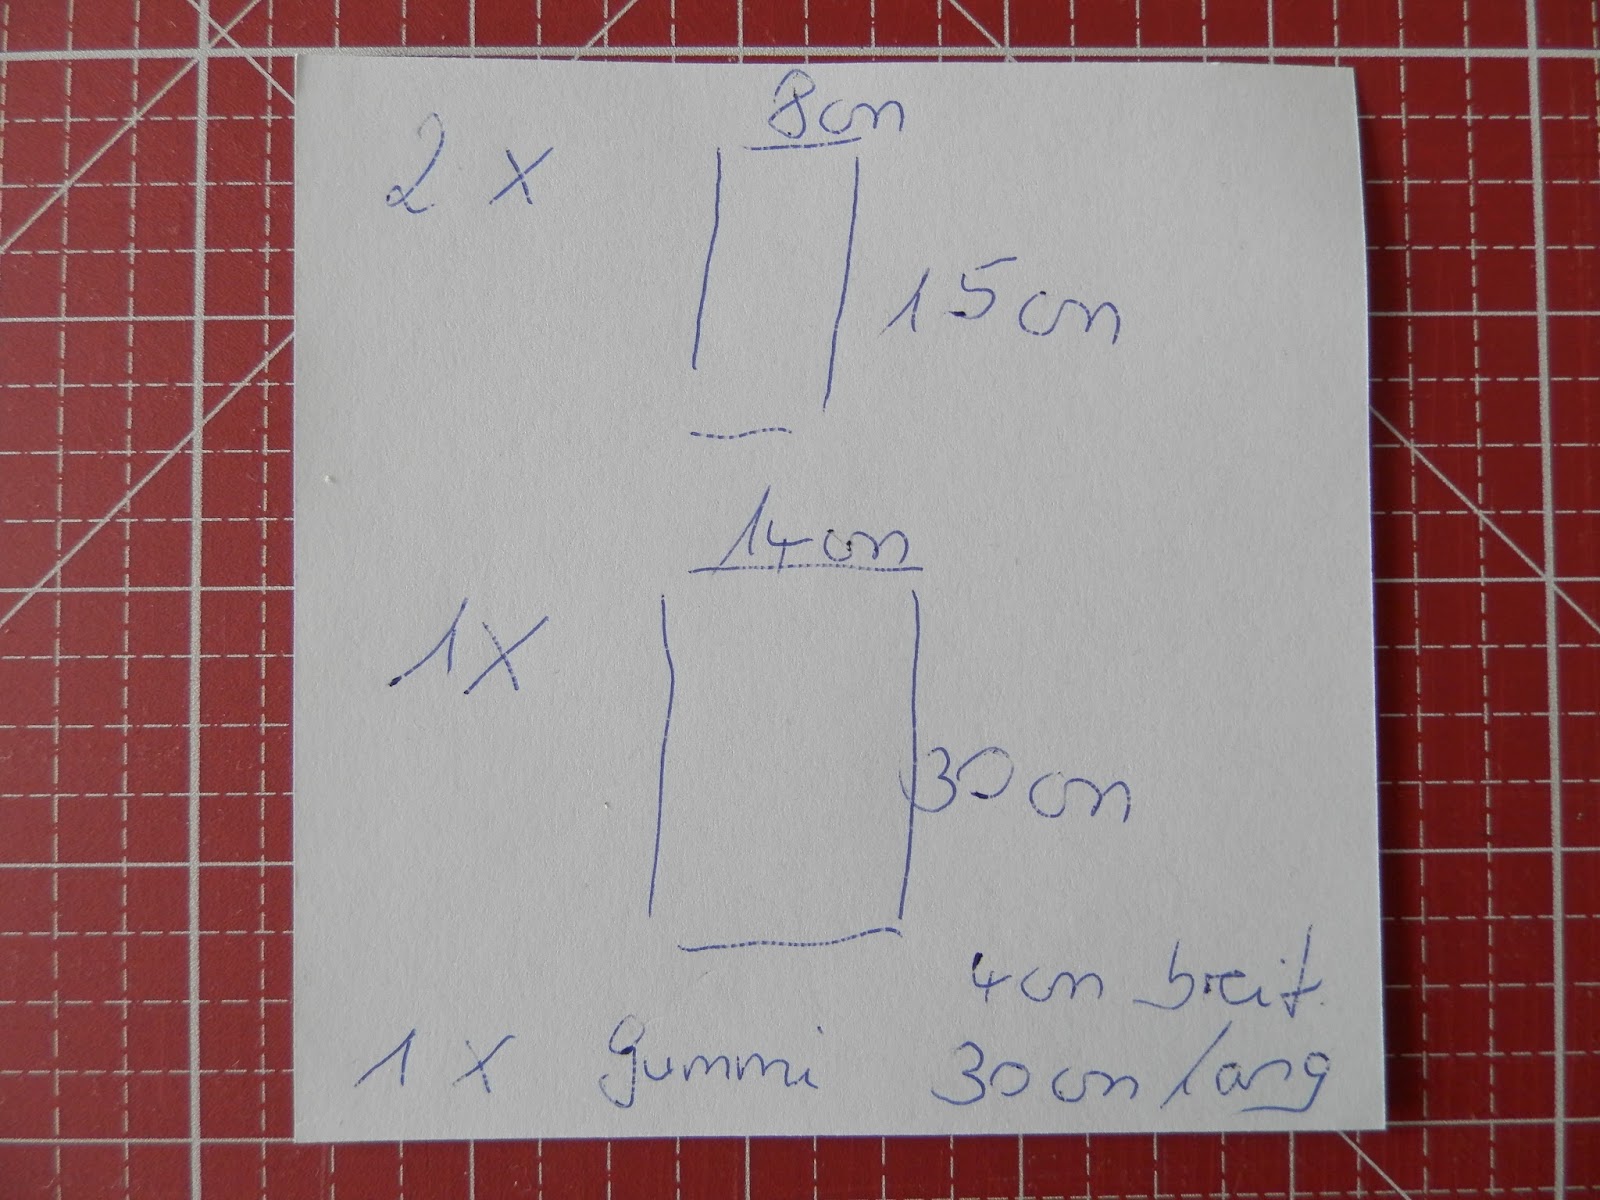 8cm
2 x
15cm
14cm
1x
30cm
4cm breit
1 x gummi 30cm lang